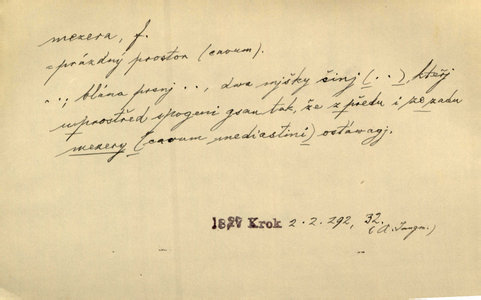 mezera, f.
= prázdný prostor (cavum).
"..., blána prsnj .., dwa myšky činj (..), kteřj
uprostřed spogeni gsau tak, že z předu i ze zadu
mezery (cavum mediastini) ostáwagj.
1827 Krok 2. 2. 292, 32.
(A. Jungm.)